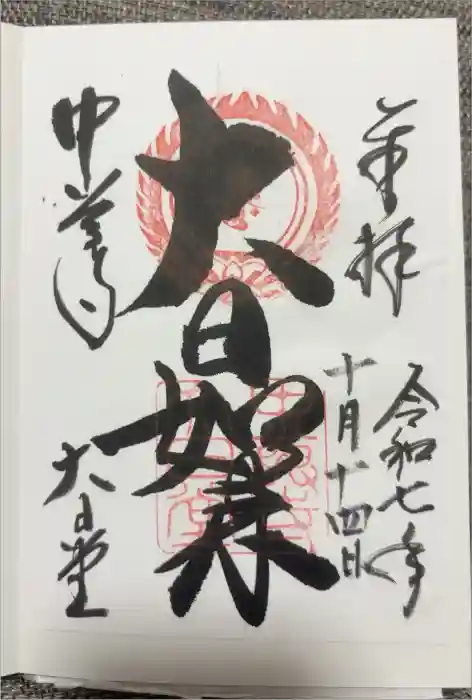 奉拝
令和七年
十月十四日
大日如来
中尊寺
大日堂